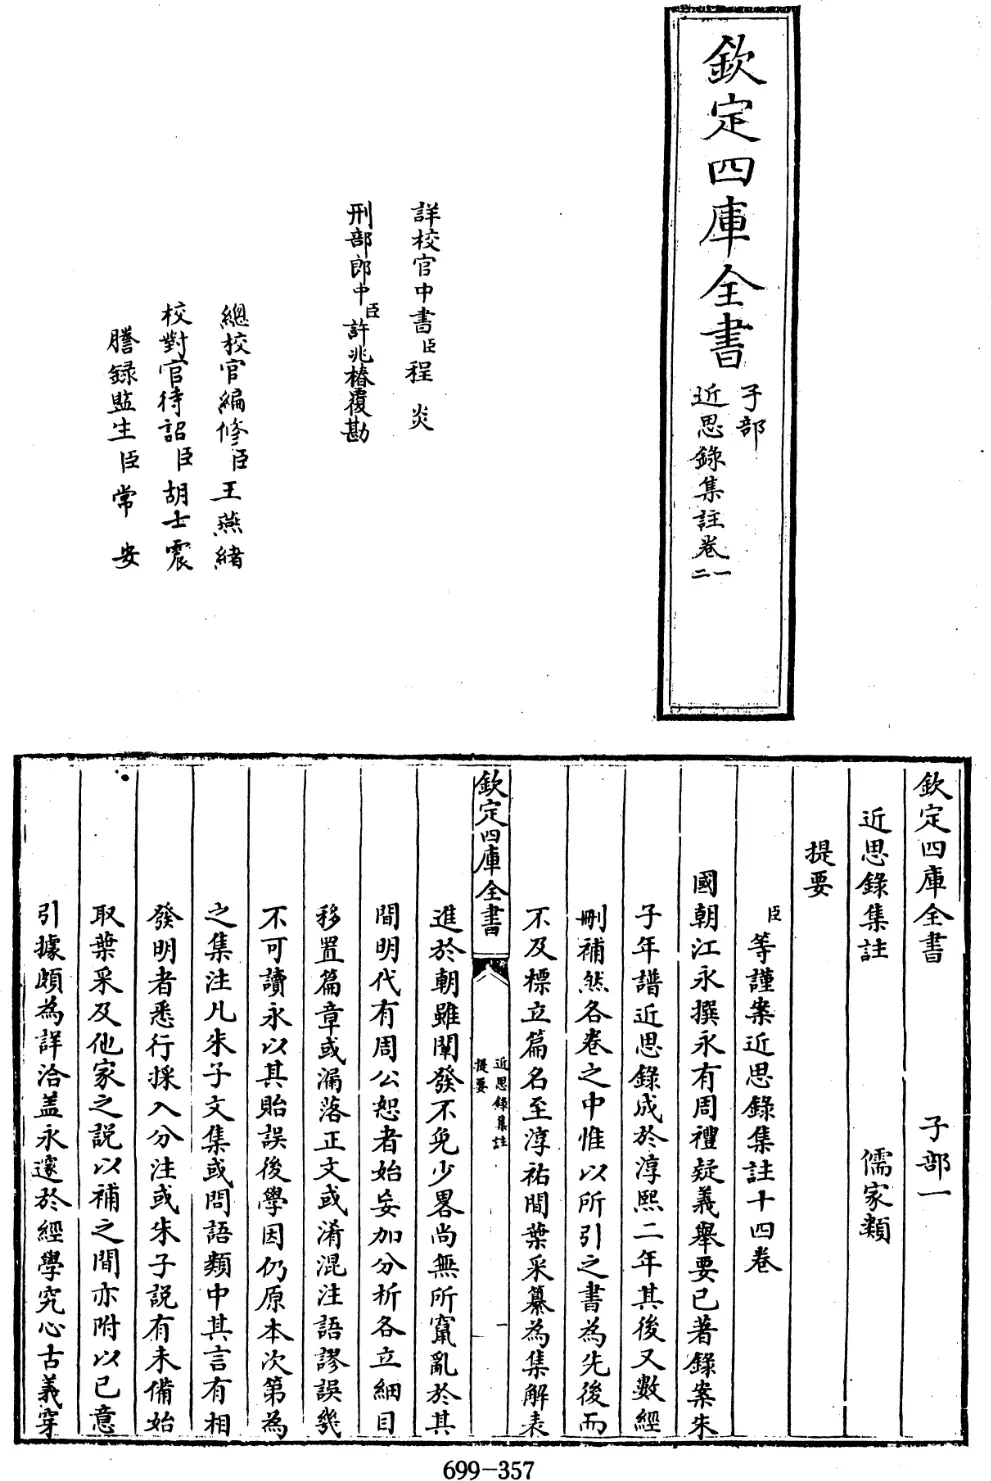 欽定四庫全書
子部
近思錄集註卷一
二
詳校官中書臣程炎
刑部郎中臣許兆椿覆勘
總校官編修臣王燕緒
校對官待詔臣胡士震
謄錄監生臣常安
欽定四庫全書　子部一
近思錄集註　儒家類
提要
臣等謹案近思錄集註十四卷
國朝江永撰永有周禮疑義舉要已著錄案朱
子年譜近思錄成於淳熙二年其後又數經
刪補然各卷之中惟以所引之書為先後而
不及標立篇名至淳祐間葉采纂為集解表
欽定四庫全書
近思錄集註
提要
一
進於朝雖闡發不免少畧尚無所竄亂於其
間明代有周公恕者始妄加分析各立細目
移置篇章或漏落正文或淆混注語謬誤幾
不可讀永以其貽誤後學因仍原本次第為
之集注凡朱子文集或問語類中其言有相
發明者悉行採入分注或朱子說有未備始
取葉采及他家之説以補之間亦附以己意
引據頗為詳洽盖永邃於經學究心古義穿
699-357